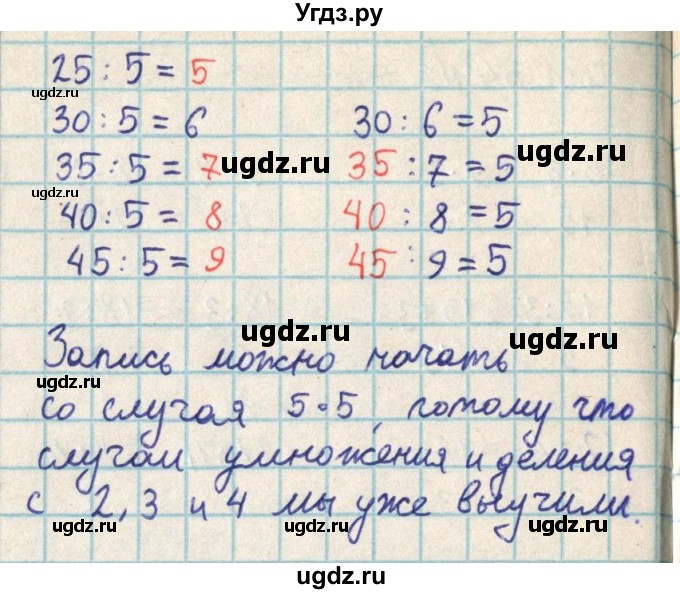 Угдз.ру
25 : 5 = 5
ugdz.ru
30 : 5 = 6 30 : 6 = 5
ugdz.ru ugdz.ru
35 : 5 = 7 35 : 7 = 5
ugdz.ru
40 : 5 = 8 40 : 8 = 5
ugdz.ru ugdz.ru
45 : 5 = 9 45 : 9 = 5
ugdz.ru ugdz.ru
Запись можно начать
ugdz.ru
со случая 5 · 5, потому что
ugdz.ru
случаи умножения и деления
с 2, 3 и 4 мы уже выучили.
ugdz.ru ugdz.ru ugdz.ru
ugdz.ru